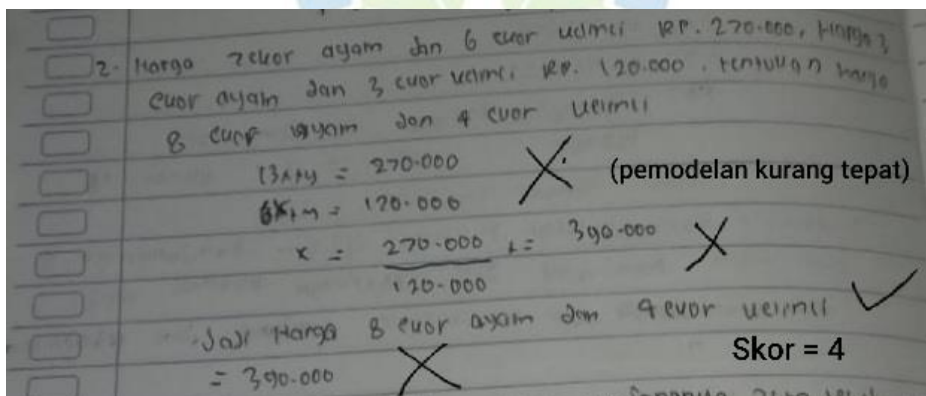 2. Harga 7 ekor ayam dan 6 ekor kelinci RP. 270.000, Harga 3
ekor ayam dan 3 ekor kelinci RP. 120.000. tentukan harga
8 ekor ayam dan 4 ekor kelinci
13x+y = 270.000
6x+y = 120.000
(pemodelan kurang tepat)
x = 270.000 = 390.000
120.000
Jadi Harga 8 ekor ayam dan 4 ekor kelinci
= 390.000
Skor = 4